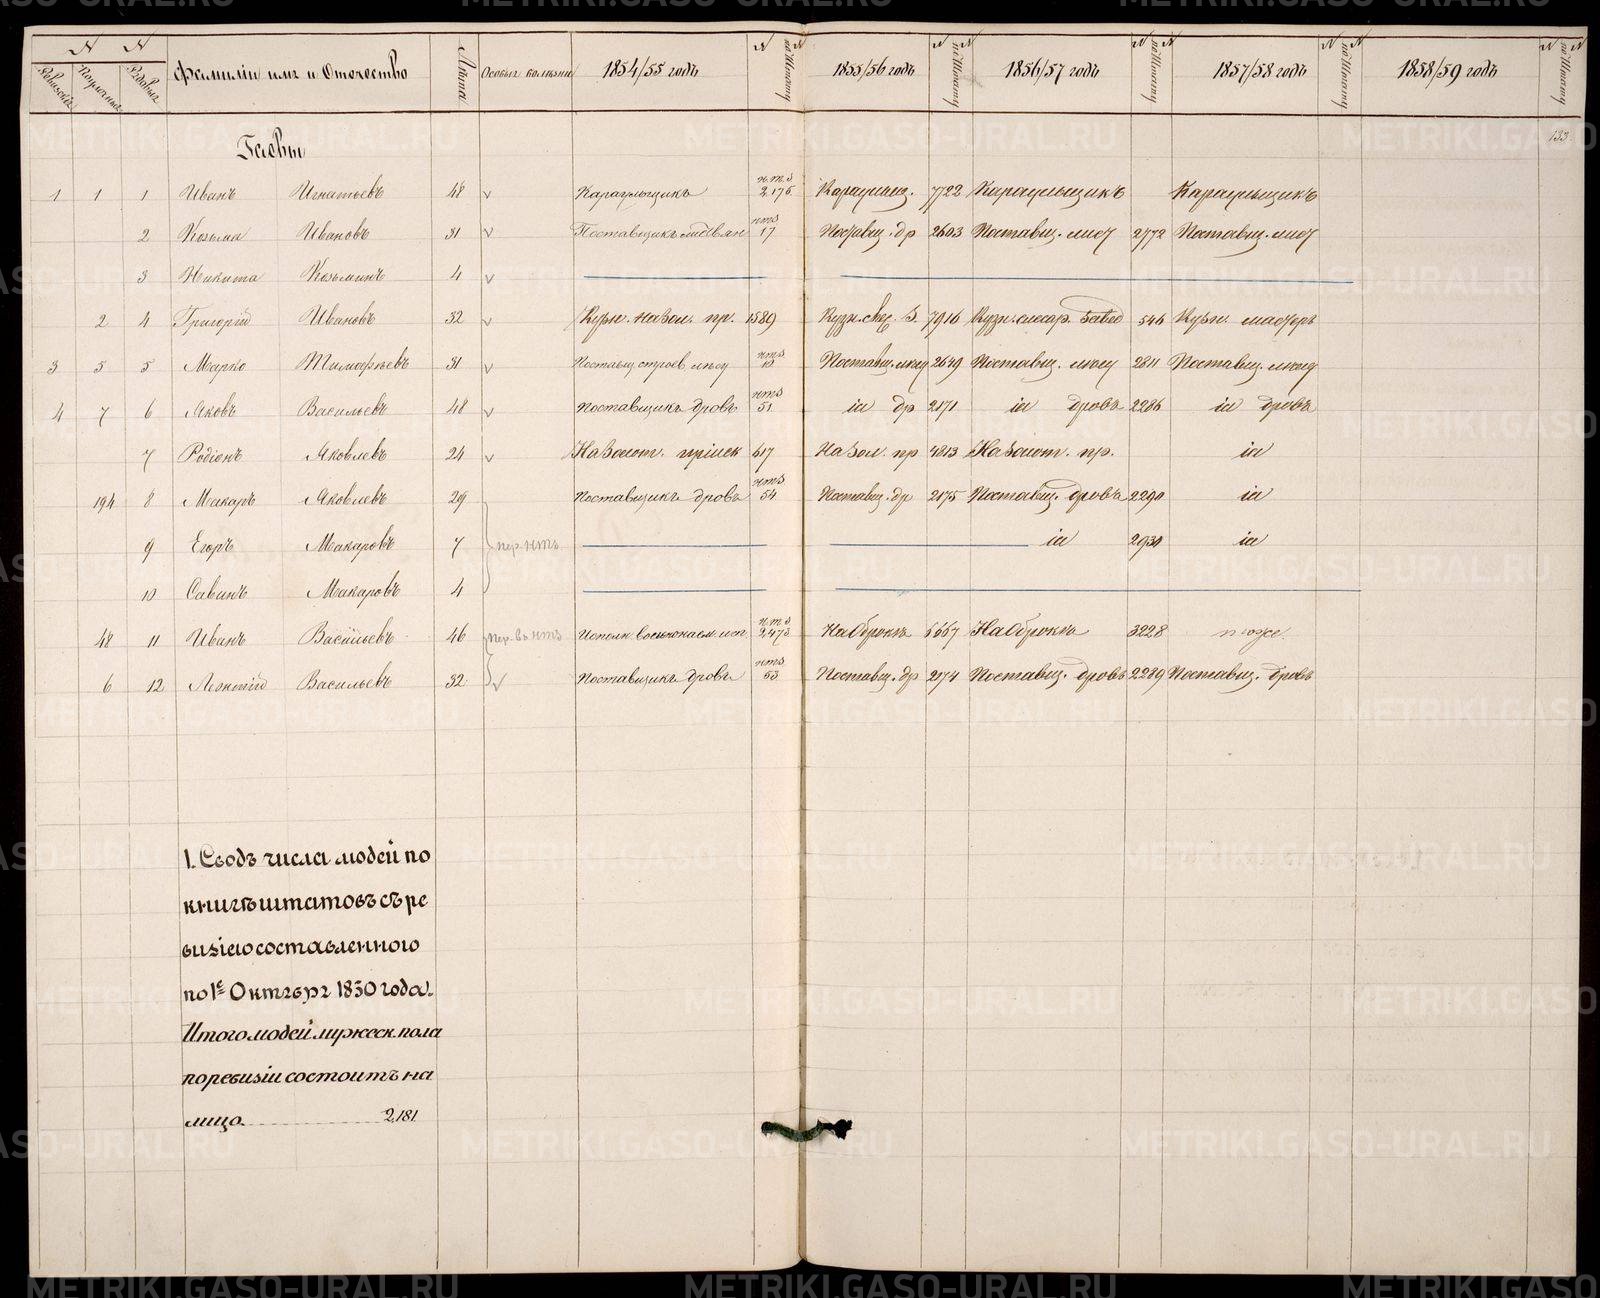 N N
Ревизскіе Посемочные Рядовые Фамиліи имя и Отечество Лета Особые болезни 1854/55 годъ N по Штату 1855/56 годъ N по Штату 1856/57 годъ N по Штату 1857/58 годъ N по Штату 1858/59 годъ N по Штату
133
1 1 1 Иванъ Игнатьевъ 48 Караульщикъ 2175 Караульщ. 7722 Караульщикъ Караульщикъ
2 Козьма Ивановъ 31 Поставщикъ 17 Поставщ. др 2603 Поставщ. 2772 Поставщ.
3 Никита Козьминъ 4
2 4 Григорій Ивановъ 32 Кузн. на зол. пр. 1589 Кузн. 7916 Кузн. слесар. завод 546 Кузн. мастеръ
3 5 5 Марко Тимофѣевъ 31 Поставщ строев. лѣсу 13 Поставщ. 2649 Поставщ. 2811 Поставщ.
4 7 6 Яковъ Васильевъ 48 Поставщикъ дровъ 51 др 2171 дровъ 2286 дровъ
7 Родіонъ Яковлевъ 24 На Золот. пріиск 617 На Зол. пр 4813 На Золот. пр.
194 8 Макаръ Яковлевъ 29 Поставщикъ дровъ 54 Поставщ. др 2175 Поставщ. дровъ 2290
9 Егоръ Макаровъ 7 пер. нтъ 2930
10 Саванъ Макаровъ 4
48 11 Иванъ Васильевъ 46 пер. въ нтъ 2473 На Оброкъ 6667 На Оброкъ 3228 тоже
6 12 Леонтій Васильевъ 32 Поставщикъ дровъ 53 Поставщ. др 2174 Поставщ. дровъ 2289 Поставщ. дровъ
1. Сводъ числа людей по
книгѣ штатовъ съ ре
визіею составленного
по 1е Октября 1850 года.
Итого людей мужеск. пола
по ревизіи состоитъ на
лицо 2,181